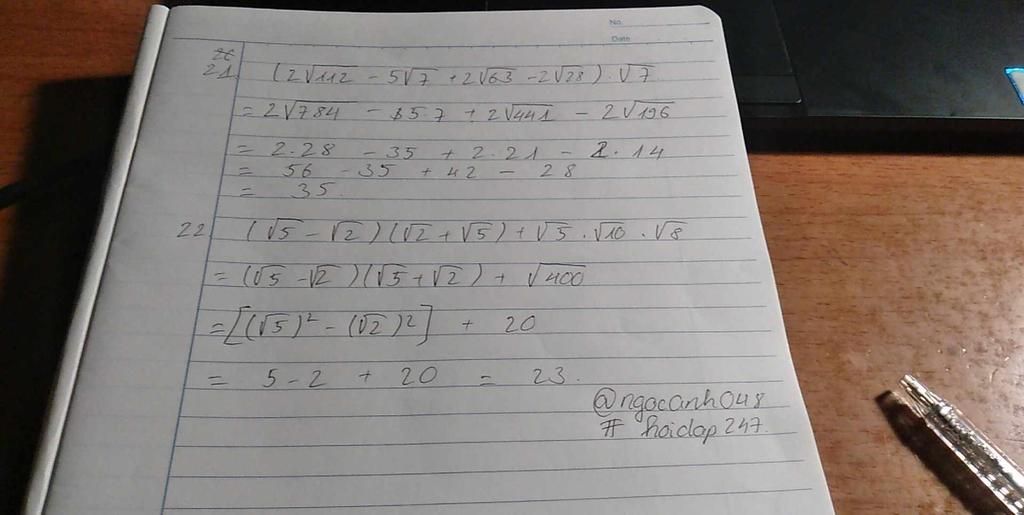 No.
Date
21 (2√112 - 5√7 + 2√63 - 2√28) . √7
= 2√784 - 5.7 + 2√441 - 2√196
= 2.28 - 35 + 2.21 - 2.14
= 56 - 35 + 42 - 28
= 35.
22 (√5 - √2)(√2 + √5) + √5 . √10 . √8
= (√5 - √2)(√5 + √2) + √400
= [(√5)² - (√2)²] + 20
= 5 - 2 + 20 = 23.
@ngocanh048
# hoidap247.